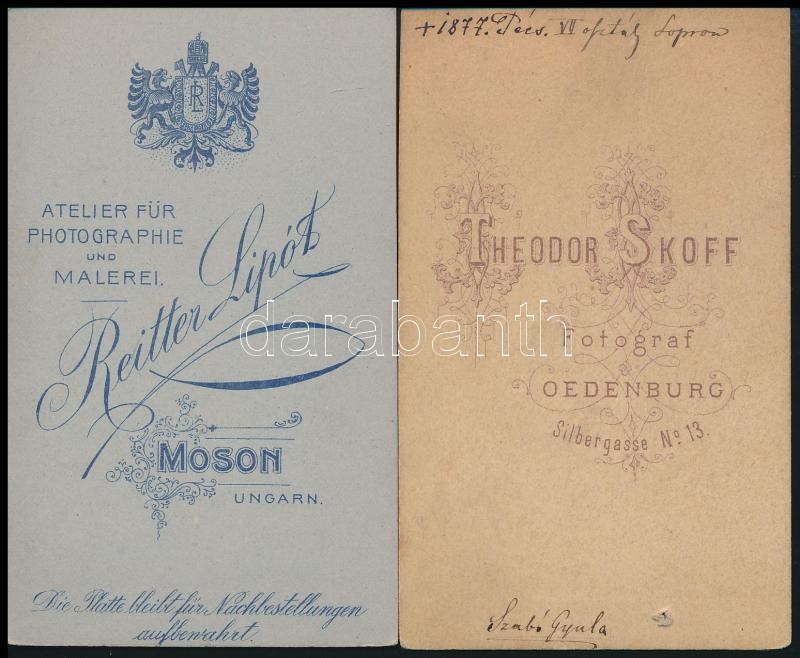 RL
ATELIER FÜR
PHOTOGRAPHIE
UND
MALEREI.
Reitter Lipót
MOSON
UNGARN.
Die Platte bleibt für Nachbestellungen
aufbewahrt.
+ 1877. Pécs. VII osztály Sopron
THEODOR SKOFF
Fotograf
OEDENBURG
Silbergasse No 13.
Szabó Gyula
darabanth